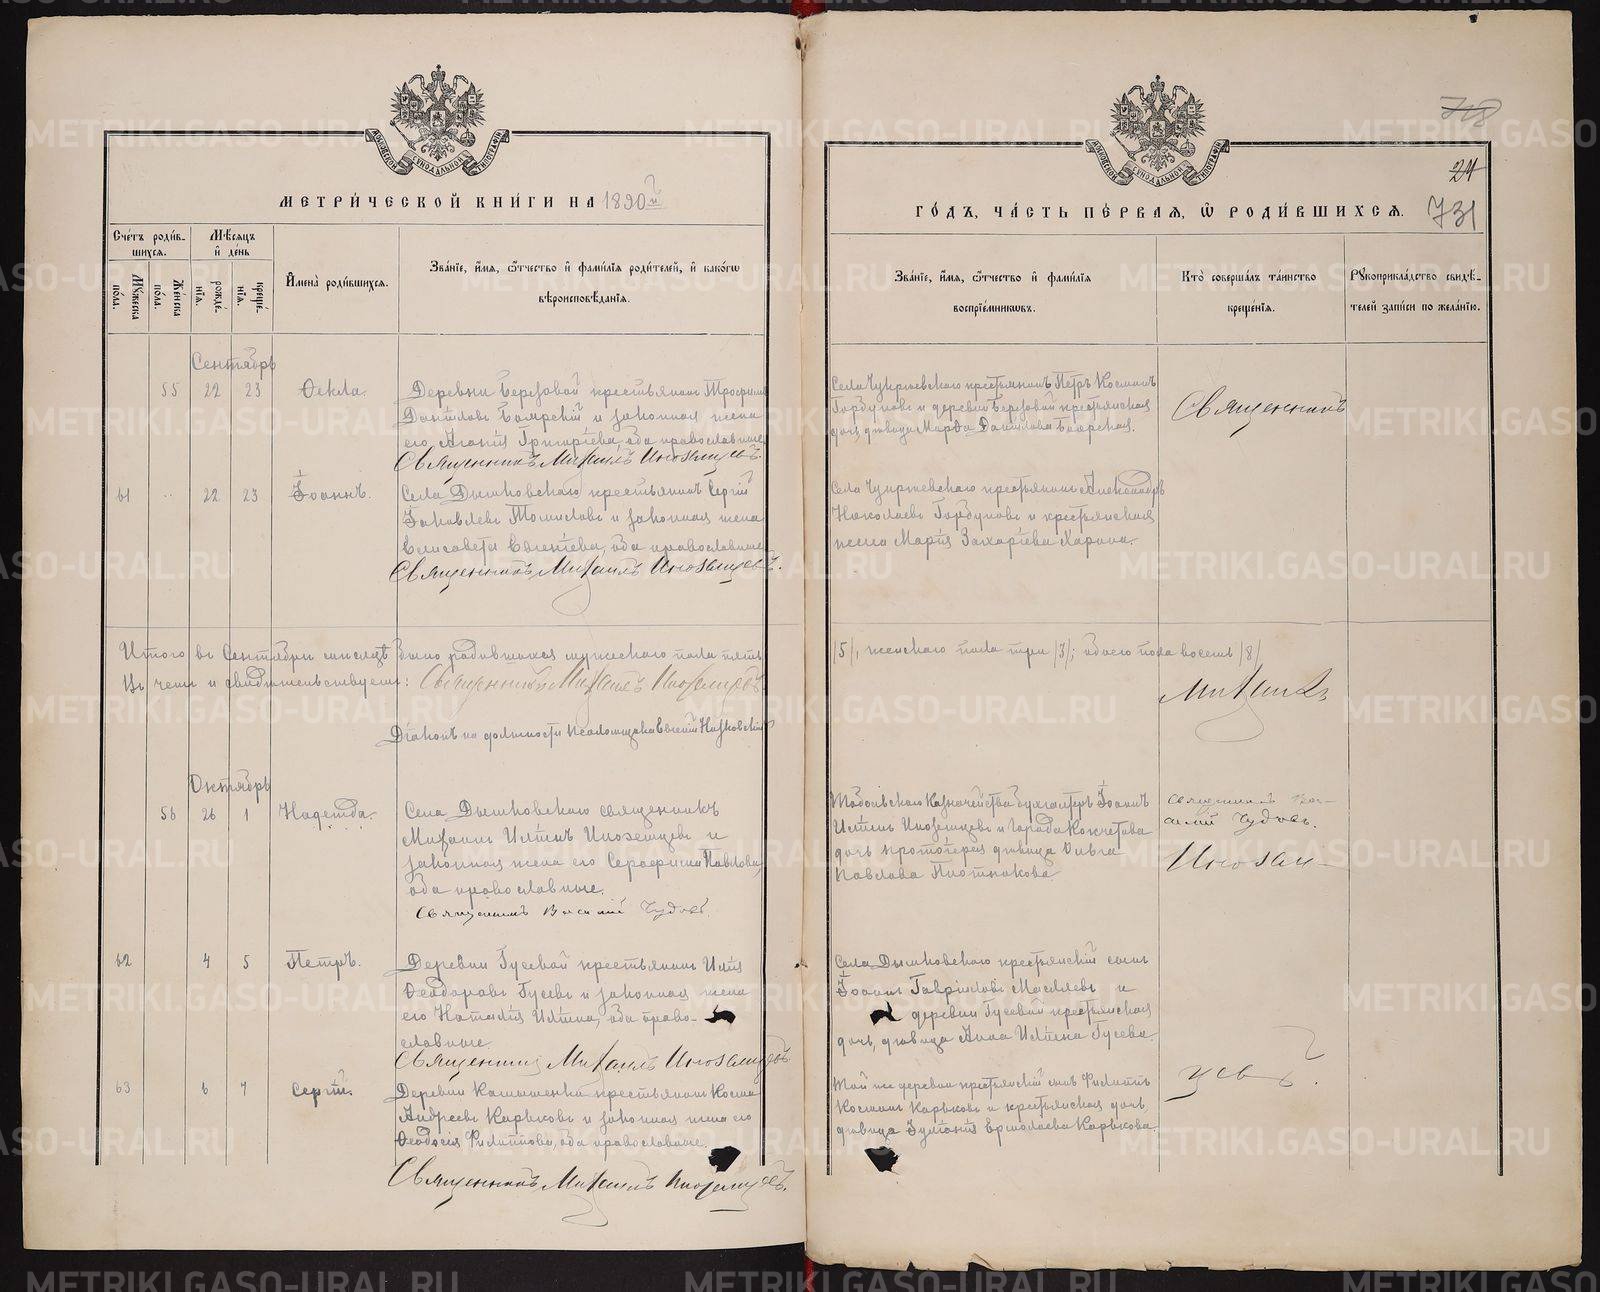 МЕТРИ́ЧЕСКОЙ КНИ́ГИ НА 1890 й
Сче́тъ роди́в-
шихся.
Мѣ́сяцъ
и҆ де́нь
Мꙋ́жеска
пола.
Же́нска
пола.
рожде́-
нїѧ.
креще́-
нїѧ.
И҆мена̀ роди́вшихсѧ.
Зва́нїе, и҆́мѧ, ѻ҆́тчество и҆ фами́лїѧ роди́телей, и҆ како́гѡ
вѣроисповѣ́данїѧ.
Сентябрь
55 22 23 Ѳекла.
Деревни Березовой крестьянинъ Трофимъ
Даниловъ Боярскій и законная жена
его, Агафія Григоріева, оба православные
Священникъ Михаилъ Иноземцевъ.
61 .. 22 23 Іоаннъ.
Села Дышковскаго крестьянинъ Сергій
Іаковлевъ Томиловъ и законная жена
Елисавета Евгеніева, оба православные
Священникъ Михаилъ Иноземцевъ.
Итого въ Сентябрѣ мѣсяцѣ было родившихся мужескаго пола пять
Въ чемъ и свидѣтельствуемъ: Священникъ Михаилъ Иноземцевъ.
Діаконъ на должности псаломщика Евгеній
Октябрь
56 26 1 Надежда.
Села Дышковскаго священникъ
Михаилъ Иліинъ Иноземцевъ и
законная жена его Серафима Павлова,
оба православные.
Священникъ Василій Чудовъ.
62 4 5 Петръ.
Деревни Гусевой крестьянинъ Илія
Ѳеодоровъ Гусевъ и законная жена
его Наталія Иліина, оба право-
славные.
Священникъ Михаилъ Иноземцевъ.
63 6 7 Сергій.
Деревни Камышенки крестьянинъ Косма
Андреевъ Карьковъ и законная жена его
Ѳеодосія Филиппова, оба православные.
Священникъ Михаилъ Иноземцевъ.
718
24
731
ГО́ДЪ, ЧА́СТЬ ПЕ́РВАѦ, Ѡ҆ РОДИ́ВШИХСѦ.
Зва́нїе, и҆́мѧ, ѻ҆́тчество и҆ фами́лїѧ
воспрїе́мникѡвъ.
Кто̀ соверша́лъ та́инство
креще́нїѧ.
Рꙋкоприкла́дство свидѣ́-
телей за́писи по жела́нїю.
крестьянинъ Петръ Косминъ
Горбуновъ и деревни Березовой крестьянская
дочь, дѣвица Марѳа Данилова Боярская.
Священникъ
крестьянинъ Александръ
Николаевъ Горбуновъ и крестьянская
жена Марія Захаріева Харина.
/5/, женскаго пола три /3/; обоего пола восемь /8/
Михаилъ
Тобольскаго Казначейства бухгалтеръ Іоаннъ
Иліинъ Иноземцевъ и города Кокчетава
дочь протоіерея дѣвица Ольга
Павлова Плотникова
священникъ Ва-
силій Чудовъ.
Инозем-
Села Дышковскаго крестьянскій сынъ
Іоаннъ Гавриловъ и
деревни Гусевой крестьянская
дочь, дѣвица Анна Иліина Гусева.
цевъ.
Той же деревни крестьянскій сынъ Филиппъ
Косминъ Карьковъ и крестьянская дочь,
дѣвица Іуліанія Ермолаева Карькова.
METRIKI.GASO-URAL.RU